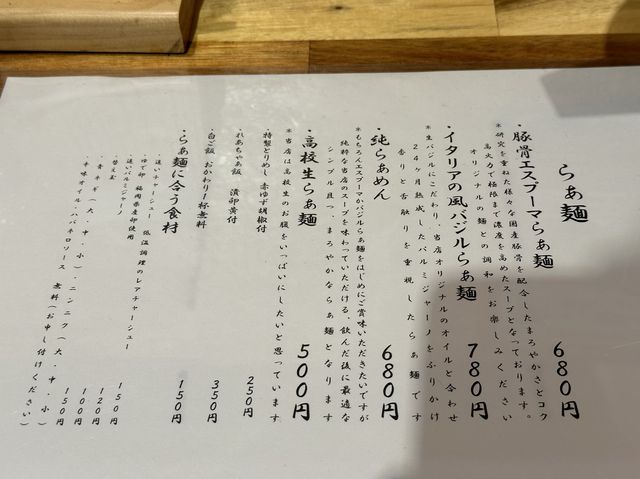 らぁ麺
・豚骨エスプーマらぁ麺 680円
＊研究を重ねた様々な国産豚骨を配合したまろやかさとコク
高火力で極限まで濃度を高めたスープとなっております。
オリジナルの麺との調和をお楽しみください
・イタリアの風バジルらぁ麺 780円
＊生バジルにこだわり、当店オリジナルのオイルと合わせ
24ヶ月熟成したパルミジャーノをふりかけ
香りと舌触りを重視したらぁ麺です
・純らぁめん 680円
＊もちろんエスプーマかバジルらぁ麺をはじめにご賞味いただきたいですが
純粋な当店のスープを味わっていただける、飲んだ後に最適な
シンプル且つ、まろやかならぁ麺となります
・高校生らぁ麺 500円
＊当店は高校生のお腹をいっぱいにしたいと思っています
特製とりめし 赤ゆず胡椒付 250円
れあちゃあ飯 漬卵黄付 350円
白ご飯 おかわり1杯無料 150円
・らぁ麺に合う食材
・追いチャーシュー 低温調理のレアチャーシュー 150円
・ゆで卵 福岡県産卵使用 120円
・追いパルミジャーノ 100円
・替え玉 150円
・青ネギ(大、中、小)・ニンニク(大、中、小)
・辛味オイル・ハバネロソース 無料(お申し付けください)